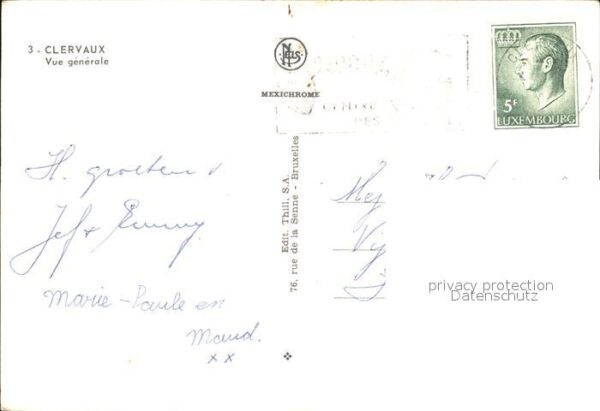 3 - CLERVAUX
Vue générale
NELS
MEXICHROME
5F
LUXEMBOURG
H. groeten v.
Jef + Emmy
Marie-Paule en
Maud.
x x
Edit. Thill, S.A.
76, rue de la Senne - Bruxelles
Mej
privacy protection
Datenschutz